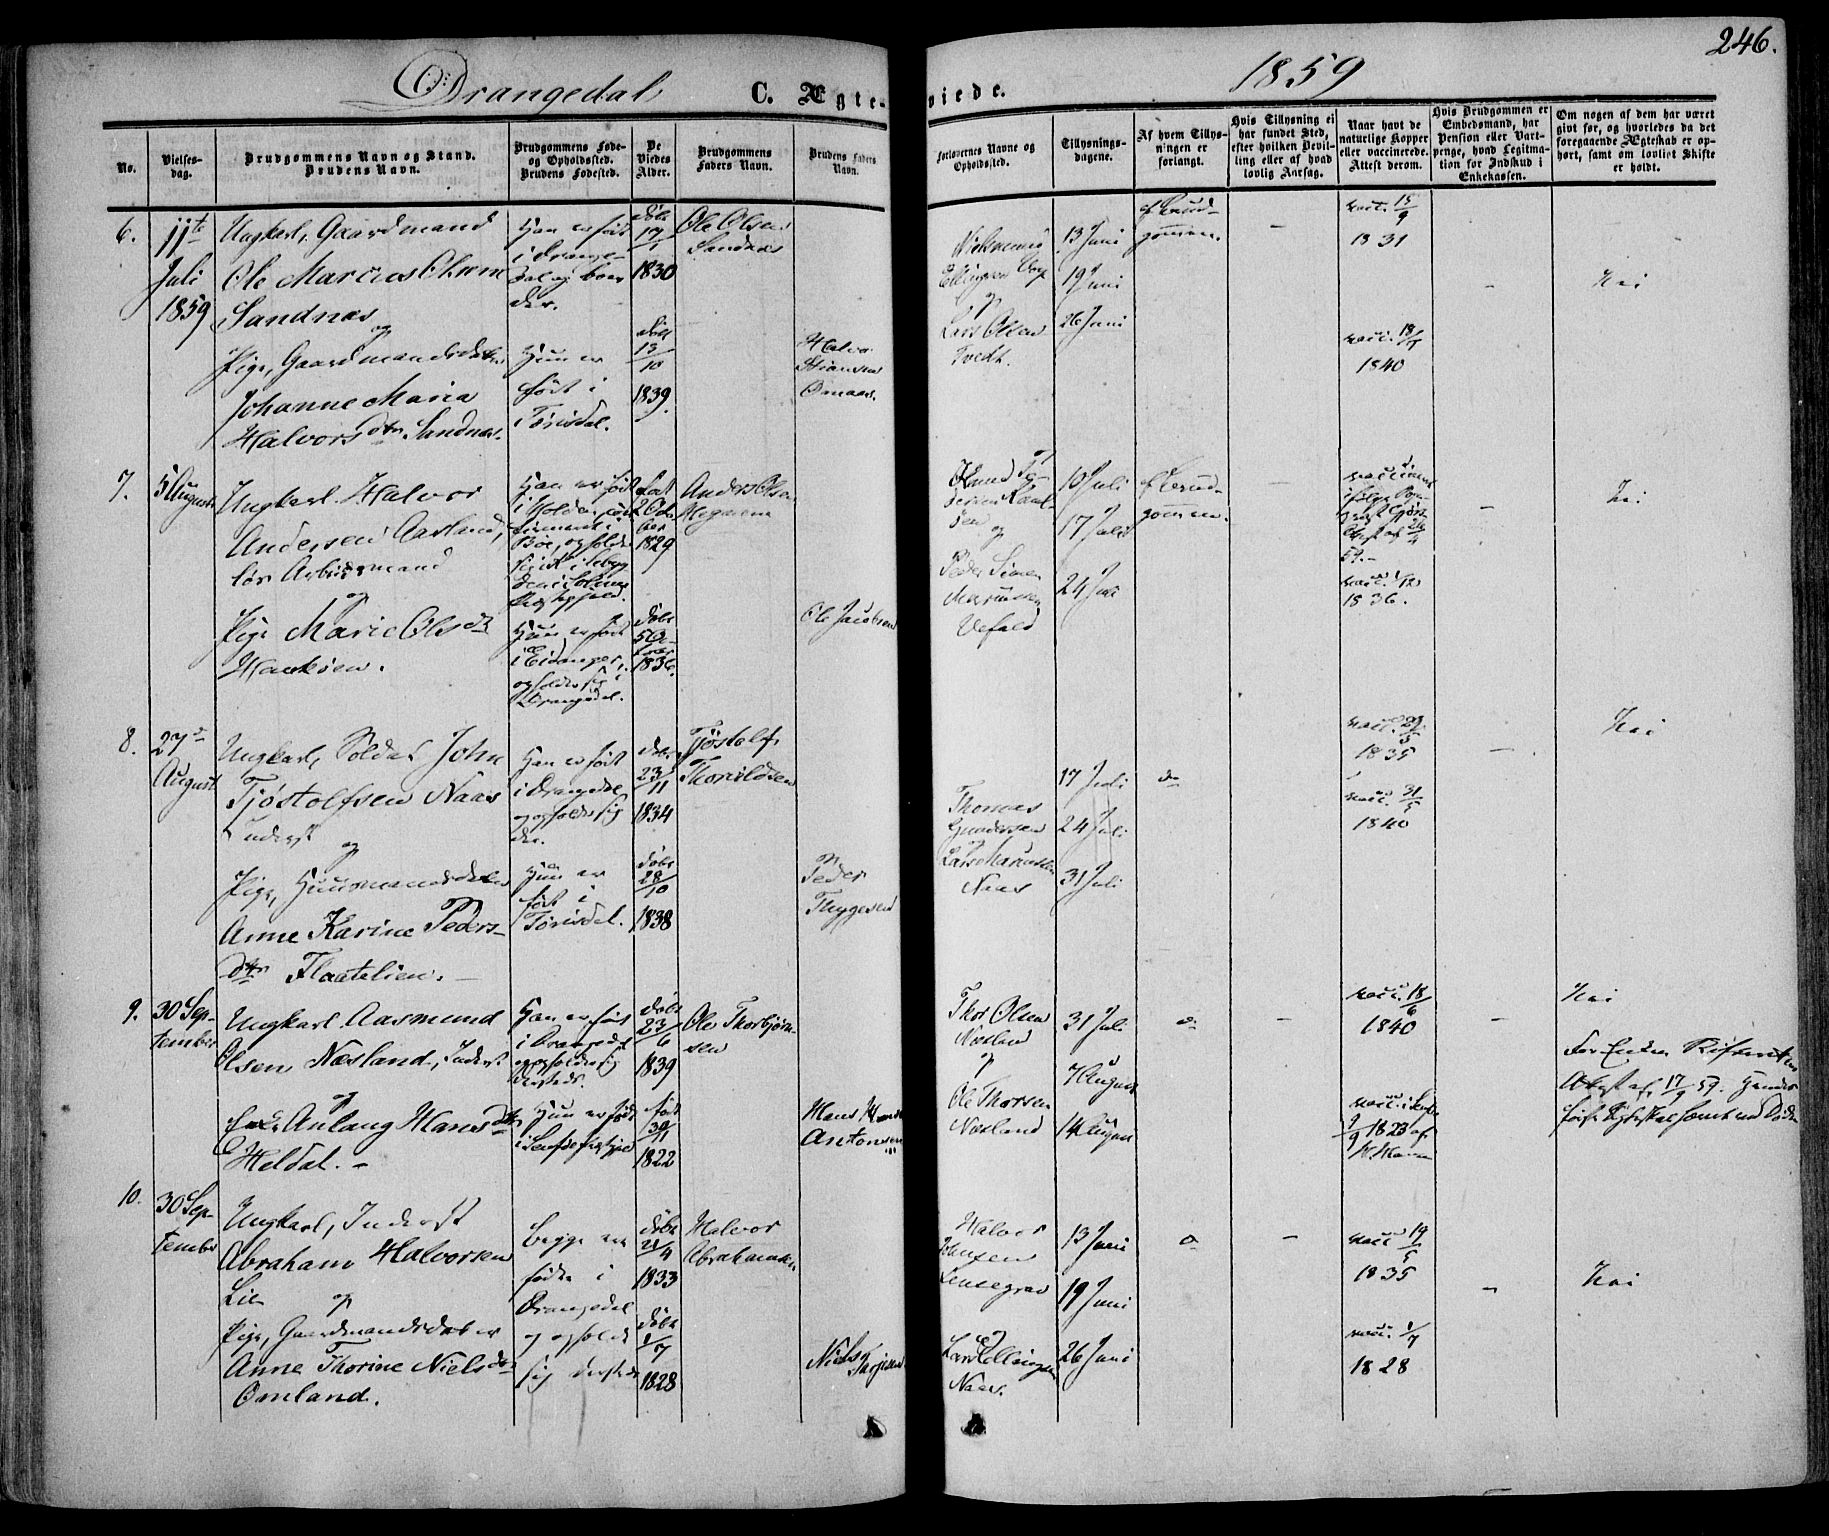 Drangedal
C. Ægte-
viede.
1859
246.
No.
Vielses-
dag.
Brudgommens Navn og Stand.
Brudens Navn.
Brudgommens Føde-
og Opholdssted.
Brudens Fødested.
De
Viedes
Alder.
Brudgommens
Faders Navn.
Brudens Faders
Navn.
Forlovernes Navne og
Opholdssted.
Tillysnings-
dagene.
Af hvem Tillys-
ningen er
forlangt.
Hvis Tillysning ei
har fundet Sted,
efter hvilken Bevil-
ling eller af hvad
lovlig Aarsag.
Naar havt de
naturlige Kopper
eller vaccinerede.
Attest derom.
Hvis Brudgommen er
Embedsmand, har
Pension eller Vart-
penge, hvad Legitma-
tion for Indskud i
Enkekassen.
Om nogen af dem har været
givt før, og hvorledes da det
foregaaende Ægteskab er op-
hørt, samt om lovligt Skifte
er holdt.
6.
11te
Juli
1859
Ungkarl, Gaardmand
Ole Marcus Olsen
Sandnæs
og
Pige, Gaardmandsdatter
Johanne Maria
Halvorsdtr Sandnæs.
Han er født
i Drange-
dal og boer
der.
Hun er
født i
Tørisdal.
døbt
17/1
1830
døbt
13/10
1839.
Ole Olsen
Sandnæs
Halvor
Stiansen
Ellingsen
og
Lars Olsen
Tvedt.
13 Juni
19 Juni
26 Juni
Brud-
gommen.
vacc. 15/9
1831
vacc.
1840
-
Nei
7.
5 August
Ungkarl Halvor
Andersen Aasland,
løs Arbeidsmand
og
Pige Marie Olsdtr
Haukøen.
Han er født
i Holden, con-
firmeret i
Bøe, og holder
Hun er født
i Eidanger,
opholder sig i
Drangedal.
født
2 Octo-
ber
1829
døbt
1836.
Anders Olsen
Ole Jacobsen
Knud
og
Peder Simon
Marcussen
Vefald
10 Juli
17 Juli
24 Juli
Brud-
gommen.
-
vaccineret
ifølge
vacc.
1836.
-
Nei
8.
27de
August
Ungkarl, Soldat John
Tjøstolfsen Naas
inderst
og
Pige, Huusmandsdatter
Anne Karine Peders-
dtr Flaatelien. -
Han er født
i Drangedal
og opholder sig
der.
Hun er
født i
Tørisdal.
døbt
23/11
1834
døbt
28/10
1838
Tjøstolf
Thorildsen
Peder
Thygesen
Thomas
Gundersen
og
Lars Marcussen
Naas
17 Juli
24 Juli
31 Juli
do
vacc.
1835
vacc. 31/5
1840
-
Nei
9.
30 Sep-
tember
Ungkarl Aasmund
Olsen Næsland, Inderst
og
Enke Anlaug Hansdtr
Heldal. -
Han er født
i Drangedal
og opholder sig
dersteds.
Hun er født
døbt
23/6
1839
født
30/11
1822
Ole Thorbjørn-
sen
Hans
Antonsen
Thor Olsen
Næsland
og
Ole Thorsen
Næsland
31 Juli
7 August
14 August
do
-
vacc. 18/6
1840
vacc. i
1823 af
-
Nei
For Enken Skifteret
Attest af 17/9 59.
10.
30 Sep-
tember
Ungkarl, Inderst
Abraham Halvorsen
Lie
og
Pige, Gaardmandsdatter
Anne Thorine Nielsdtr
Omland.
begge ere
fødte i
Drangedal
og opholde
sig dersteds
døbt
21/4
1833
døbt
1/7
1828
Halvor
Abrahamsen
Niels
Tarjesen
Halvor
Johnsen
Lensegrav
og
Lars Ellingsen
Naas.
13 Juni
19 Juni
26 Juni
do
-
vacc. 19/5
1835
vacc. 1/7
1828
-
Nei